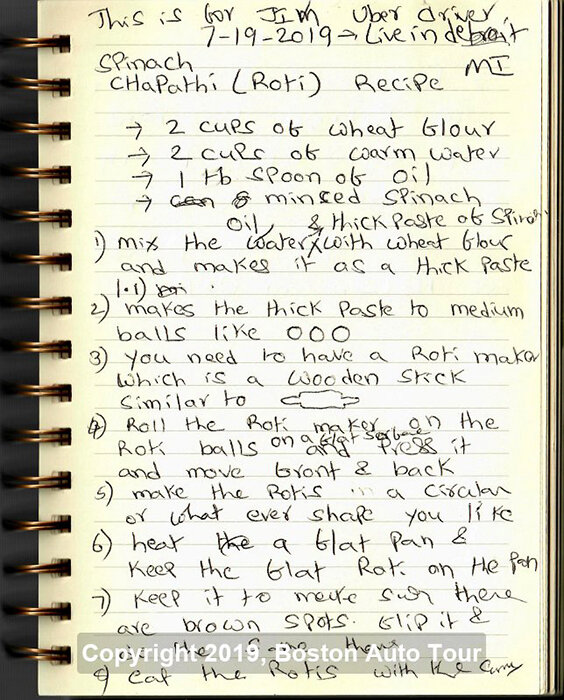 This is for Jim Uber driver
7-19-2019 → Live in detroit
MI
Spinach
CHaPathi (Roti) Recipe
→ 2 cups of wheat flour
→ 2 cups of warm water
→ 1 tb spoon of oil
→ minced spinach
oil & thick paste of
1) mix the water with wheat flour
and makes it as a thick paste
1.1)
2) makes the thick paste to medium
balls like OOO
3) you need to have a Roti maker
which is a wooden stick
similar to
4) Roll the Roti maker on the
on a flat surface
Roti balls and press it
and move front & back
5) make the Rotis a circular
or what ever shape you like
6) heat a flat pan &
keep the flat Roti on the pan
7) keep it to make sure there
are brown spots. flip it &
Copyright 2019, Boston Auto Tour
eat the Rotis with the curry